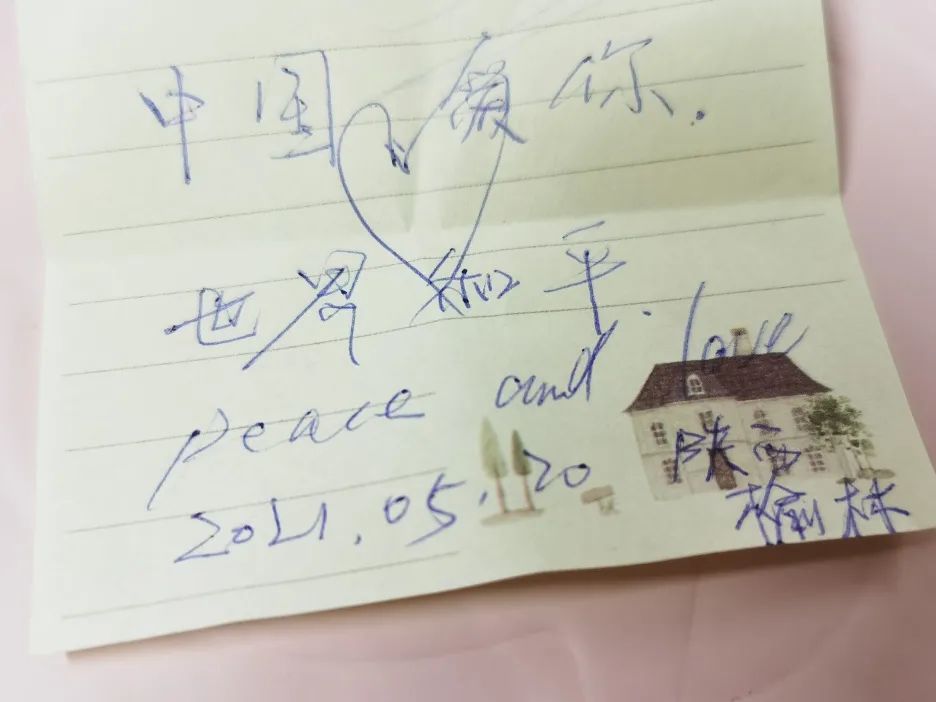 中国爱你.
世界和平.
peace and love
2021.05.20 陕西
榆林